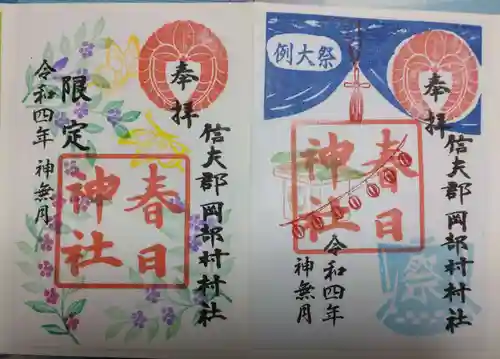 奉拝
信夫郡岡部村村社
春日
神社
限定
令和四年 神無月
限定
例大祭
奉拝
信夫郡岡部村村社
春日
神社
令和四年
神無月
祭